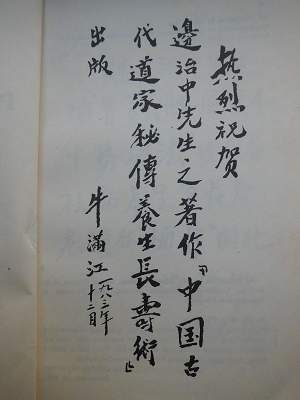 热烈祝贺
邊治中先生之著作『中国古
代道家秘傳養生長壽術』
出版
牛滿江 一九八三年
十二月